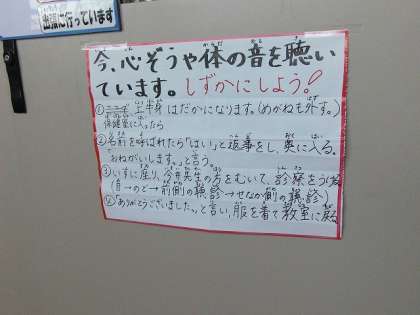 出張に行っています
今、心ぞうや体の音を聴い
ています。しずかにしよう!
①ここで上半身はだかになります。(めがねも外す。)
保健室に入ったら
②名前を呼ばれたら「はい」と返事をし、奥に入る。
「おねがいします。」と言う。
③いすに座り、今井先生の方をむいて、診察をうける
(目→のど→前側の聴診→せなか側の聴診)
④「ありがとうございました。」と言い、服を着て教室に戻る